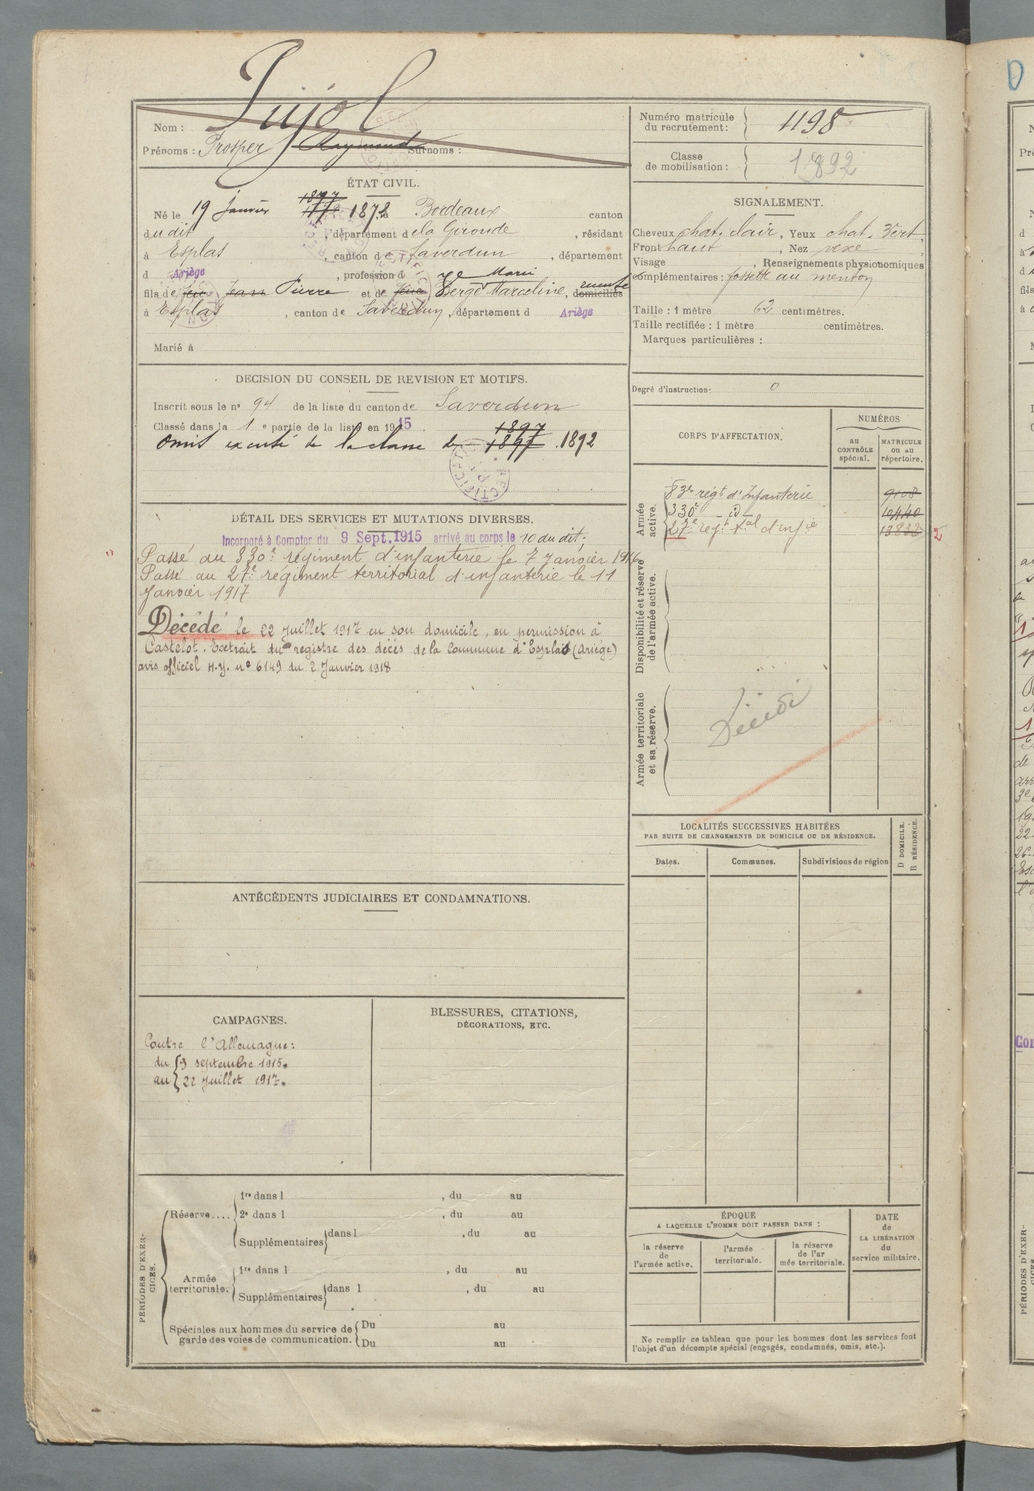 Pujol
Nom :
Prénoms : Prosper Raymond Surnoms :
Numéro matricule du recrutement : 1198
Classe de mobilisation : 1892
ÉTAT CIVIL.
1897
Né le 19 janvier 1877 1872, à Bordeaux canton
dudit, département de la Gironde, résidant
à Esplas, canton de Saverdun, département
d Ariège, profession d
fils de feu Jean Pierre et de feue Vergé Marie Marceline, domiciliés
à Esplas, canton de Saverdun, département d Ariège
Marié à
SIGNALEMENT.
Cheveux chat. clair, Yeux chat. vert,
Front haut, Nez vexe
Visage , Renseignements physionomiques
complémentaires : fossette au menton
Taille : 1 mètre 62 centimètres.
Taille rectifiée : 1 mètre centimètres.
Marques particulières :
Degré d'instruction : 0
DECISION DU CONSEIL DE REVISION ET MOTIFS.
Inscrit sous le n° 94 de la liste du canton de Saverdun
Classé dans la 1 e partie de la liste en 1915
1897
Omis excusé de la classe de 1897 .1892
RECTIFICATION
CORPS D'AFFECTATION.
NUMÉROS
AU CONTRÔLE spécial.
MATRICULE OU AU répertoire.
Armée active.
83e régt d'Infanterie 9108
330e - id - 10440
27e régt tal d'infie 13822
Disponibilité et réserve de l'armée active.
Armée territoriale et sa réserve.
Décédé
DÉTAIL DES SERVICES ET MUTATIONS DIVERSES.
Incorporé à Compter du 9 Sept. 1915 arrivé au corps le 10 du dit.
Passé au 330e régiment d'infanterie le 7 Janvier 1916
Passé au 27e régiment territorial d'infanterie le 11
Janvier 1917
Décédé le 22 Juillet 1917 en son domicile, en permission à
Castelot. Extrait du registre des décès de la Commune d'Esplas (Ariège)
avis officiel n° 6149 du 2 Janvier 1918
LOCALITÉS SUCCESSIVES HABITÉES
PAR SUITE DE CHANGEMENTS DE DOMICILE OU DE RÉSIDENCE.
Dates.
Communes.
Subdivisions de région
D DOMICILE.
R RÉSIDENCE.
ANTÉCÉDENTS JUDICIAIRES ET CONDAMNATIONS.
CAMPAGNES.
Contre l'Allemagne :
du 9 septembre 1915.
au 22 Juillet 1917.
BLESSURES, CITATIONS,
DÉCORATIONS, ETC.
PÉRIODES D'EXERCICES.
Réserve....
1re dans l , du au
2e dans l , du au
Supplémentaires dans l , du au
Armée territoriale.
1re dans l , du au
Supplémentaires dans l , du au
Spéciales aux hommes du service de garde des voies de communication.
Du au
Du au
ÉPOQUE
A LAQUELLE L'HOMME DOIT PASSER DANS :
la réserve de l'armée active.
l'armée territoriale.
la réserve de l'armée territoriale.
DATE de LA LIBÉRATION du service militaire.
Ne remplir ce tableau que pour les hommes dont les services font
l'objet d'un décompte spécial (engagés, condamnés, omis, etc.).